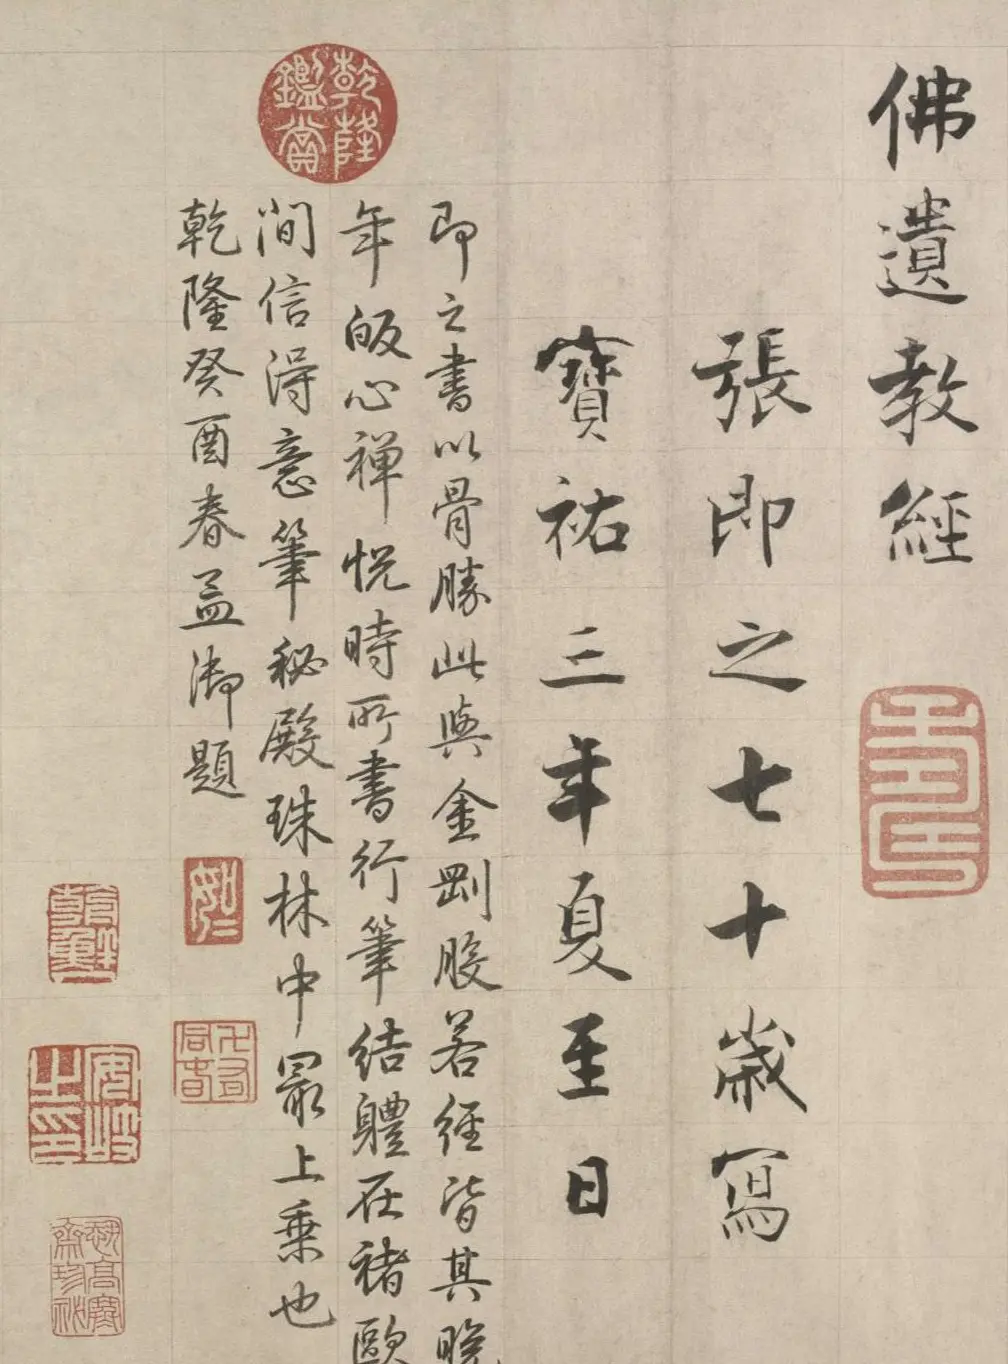 佛遺教經
張即之七十歲寫
寶祐三年夏至日
乾隆鑑賞
即之書以骨勝此與金剛般若經皆其晚
年皈心禪悅時所書行筆結體在褚歐
間信得意筆秘殿珠林中最上乘也
乾隆癸酉春孟御題
安岐之印